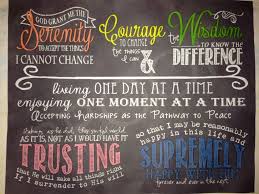 GOD GRANT ME THE
Serenity
TO ACCEPT THE THINGS
I CANNOT CHANGE
Courage
TO CHANGE
the things
I can
&
the
Wisdom
TO KNOW THE
DIFFERENCE
living ONE DAY AT A TIME
enjoying ONE MOMENT AT A TIME
Accepting hardships as the Pathway to Peace
taking, as he did, this sinful world
as it is, not as I would have it
TRUSTING
that He will make all things right
if I surrender to His will
so that I may be reasonably
happy in this life and
SUPREMELY
HAPPY WITH HIM
forever and ever in the next